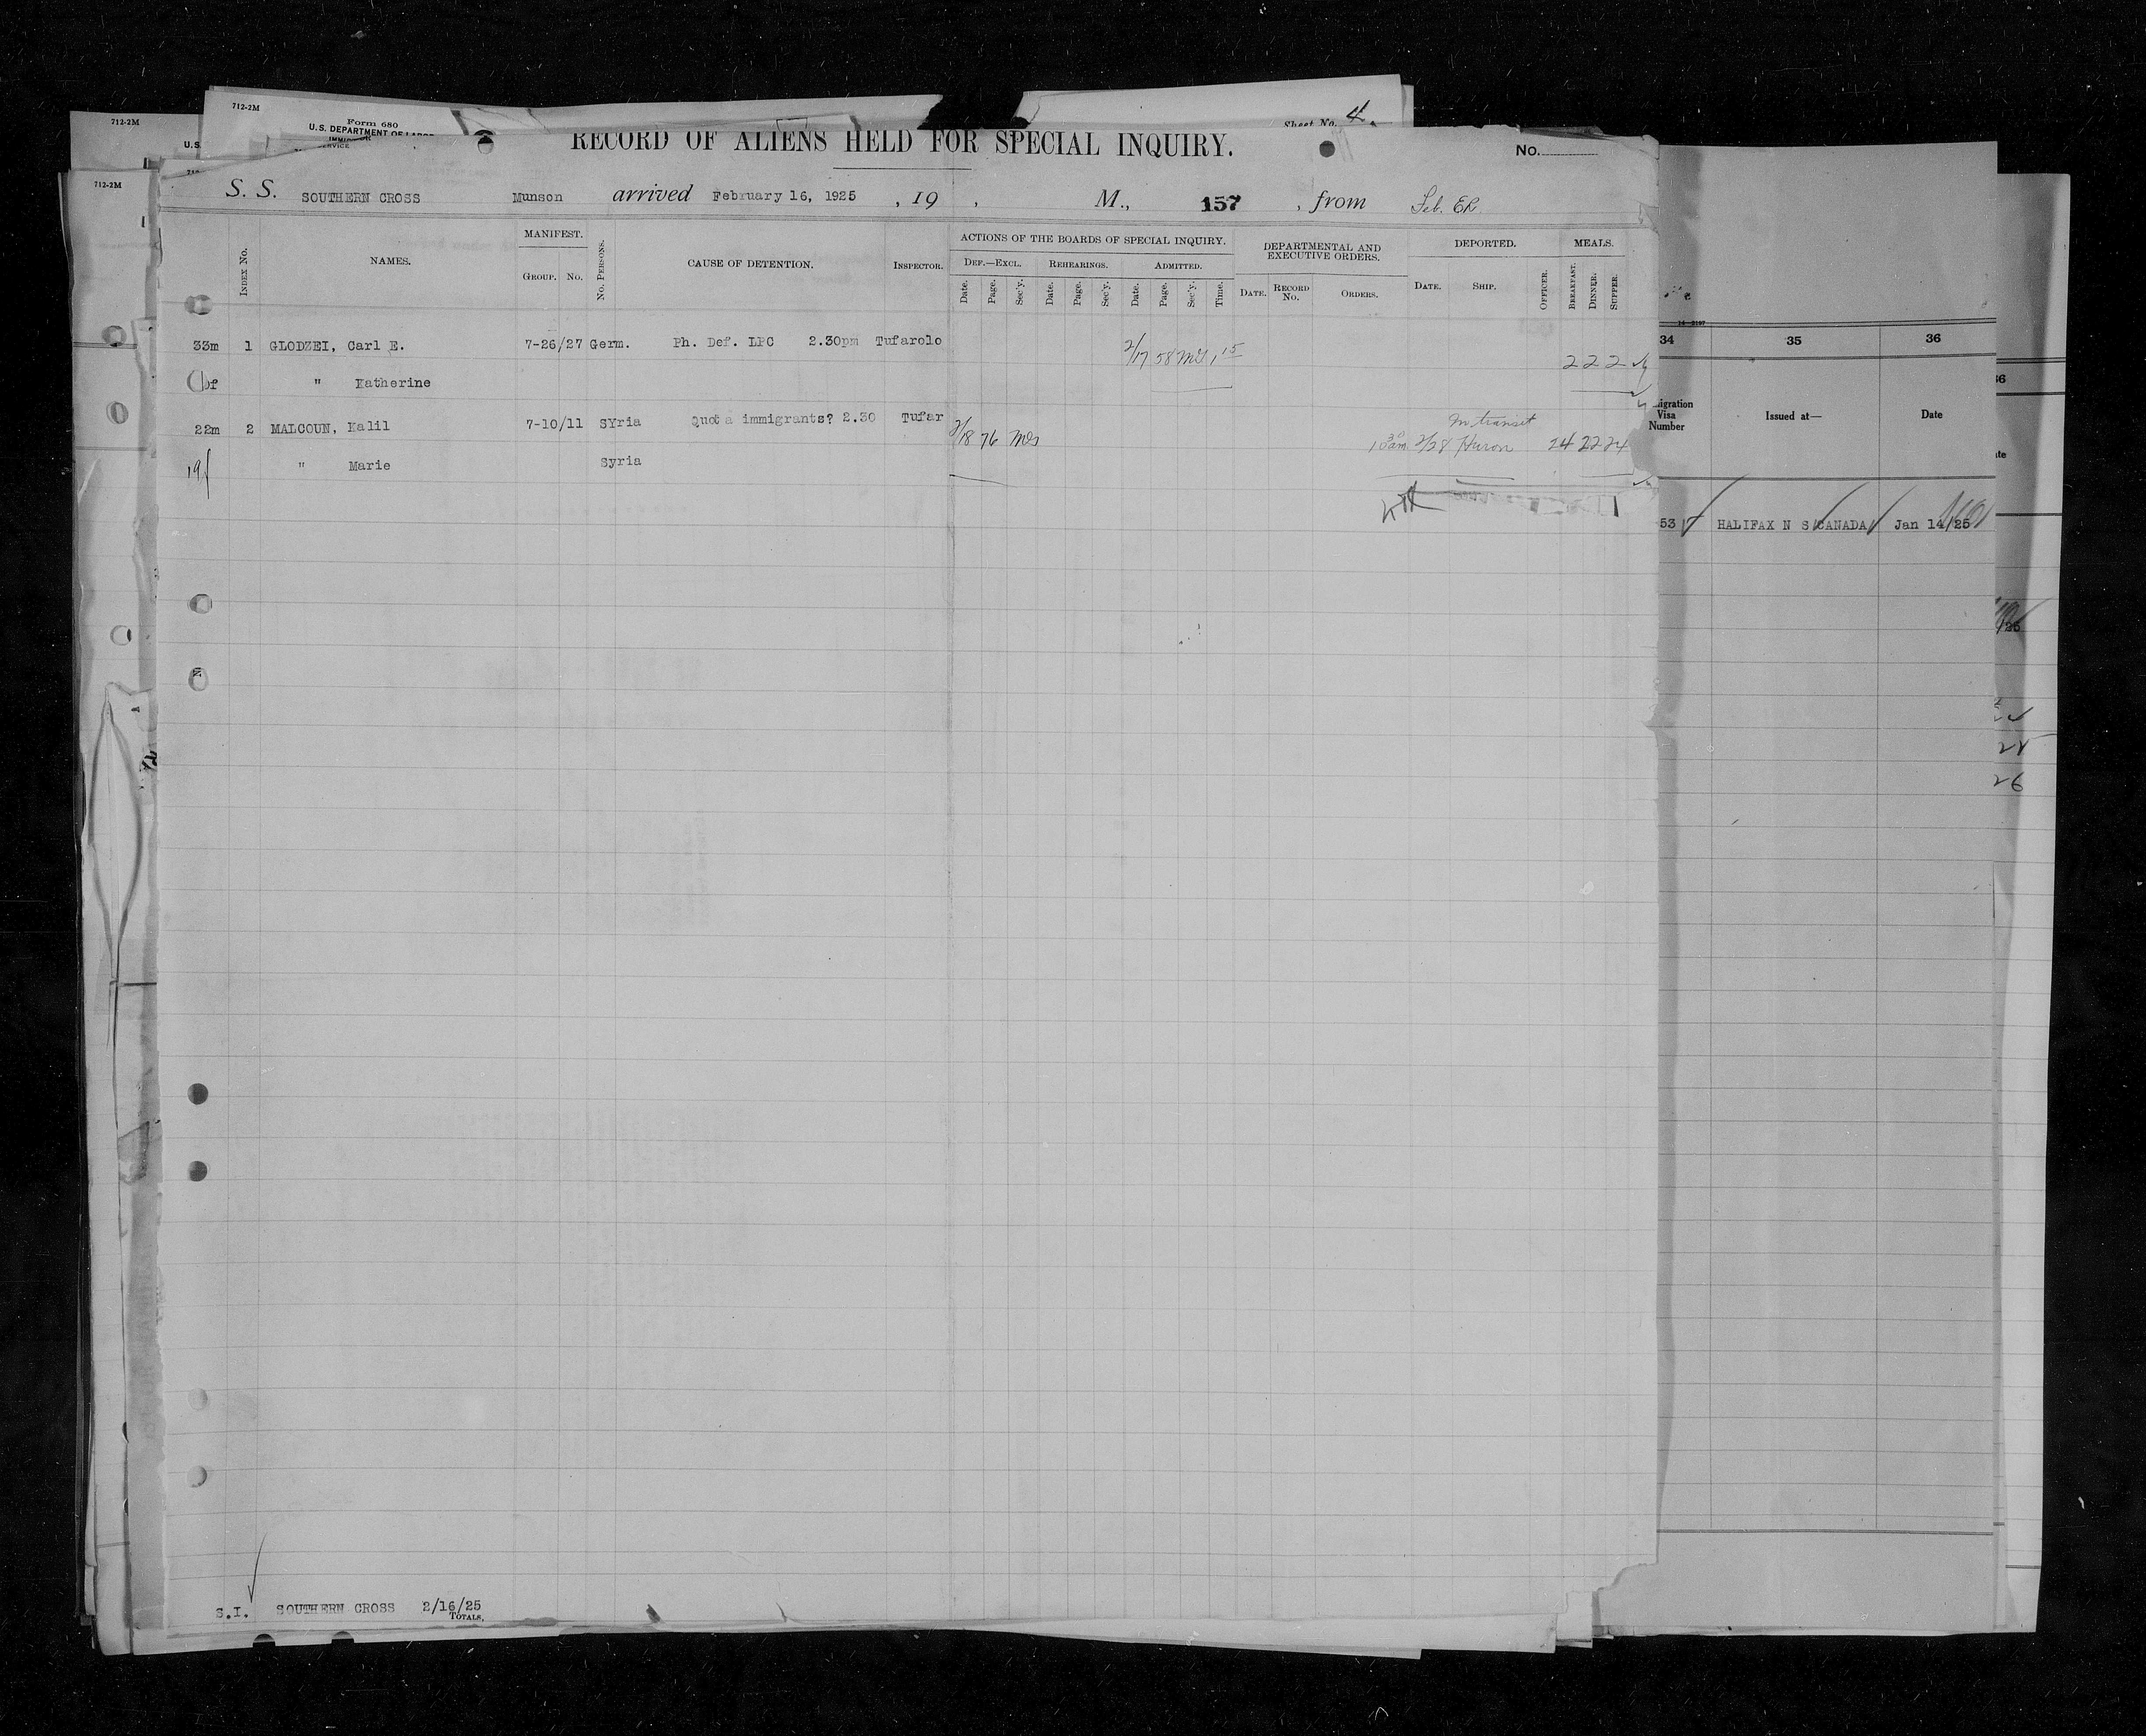 712-2M
712-2M
Form 680
U.S. DEPARTMENT OF LABOR
U.S.
712-2M
Sheet No. 4
RECORD OF ALIENS HELD FOR SPECIAL INQUIRY.
No.
S. S. SOUTHERN CROSS Munson arrived February 16, 1925 , 19 , M., 157 , from
INDEX No. NAMES. MANIFEST. GROUP. No. No. PERSONS. CAUSE OF DETENTION. INSPECTOR. ACTIONS OF THE BOARDS OF SPECIAL INQUIRY. DEPARTMENTAL AND EXECUTIVE ORDERS. DEPORTED. MEALS.
DEF.—EXCL. REHEARINGS. ADMITTED.
Date. Page. Sec'y. Date. Page. Sec'y. Date. Page. Sec'y. Time. DATE. RECORD No. ORDERS. DATE. SHIP. OFFICER. BREAKFAST. DINNER. SUPPER.
33m 1 GLODZEI, Carl E. 7-26/27 Germ. Ph. Def. LPC 2.30pm Tufarolo 2/17 58 1 15 2 2 2
" Katherine
22m 2 MALCOUN, Kalil 7-10/11 SYria Quota immigrants? 2.30 Tufar 2/18 76 In transit 2/28 Huron 24 22 24
19f " Marie Syria
34 35 36
Visa Number Issued at— Date
53 HALIFAX N S CANADA Jan 14/25
26
S.I. SOUTHERN CROSS 2/16/25
TOTALS,